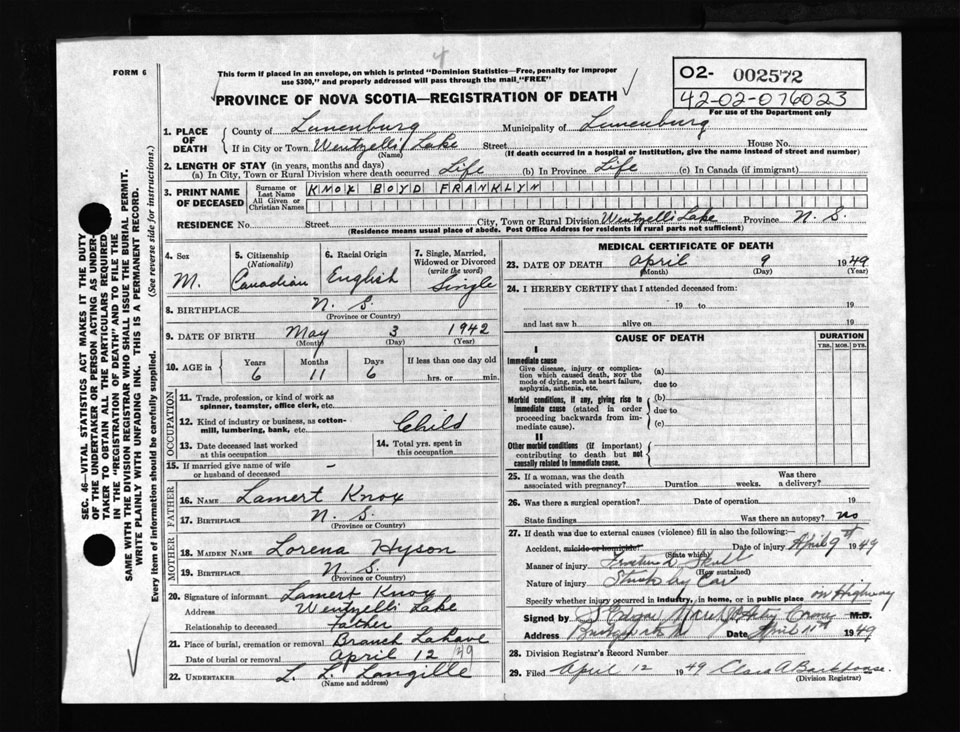 4
FORM 6
This form if placed in an envelope, on which is printed "Dominion Statistics—Free, penalty for improper
use $300," and properly addressed will pass through the mail, "FREE"
PROVINCE OF NOVA SCOTIA—REGISTRATION OF DEATH
02- 002572
42-02-076023
For use of the Department only
1. PLACE OF DEATH
County of Lunenburg Municipality of Lunenburg
If in City or Town Wentzells Lake Street House No.
(Name) (If death occurred in a hospital or institution, give the name instead of street and number)
2. LENGTH OF STAY (in years, months and days)
(a) In City, Town or Rural Division where death occurred Life (b) In Province Life (c) In Canada (if immigrant)
3. PRINT NAME OF DECEASED
Surname or Last Name KNOX BOYD FRANKLYN
All Given or Christian Names
RESIDENCE No. Street City, Town or Rural Division Wentzells Lake Province N.S.
(Residence means usual place of abode. Post Office Address for residents in rural parts not sufficient)
4. Sex M.
5. Citizenship (Nationality) Canadian
6. Racial Origin English
7. Single, Married, Widowed or Divorced (write the word) Single
8. BIRTHPLACE N.S.
(Province or Country)
9. DATE OF BIRTH May 3 1942
(Month) (Day) (Year)
10. AGE in Years 6 Months 11 Days 6 If less than one day old
hrs. or min.
OCCUPATION
11. Trade, profession, or kind of work as
spinner, teamster, office clerk, etc.
12. Kind of industry or business, as cotton-
mill, lumbering, bank, etc. Child
13. Date deceased last worked
at this occupation
14. Total yrs. spent in
this occupation
15. If married give name of wife
or husband of deceased –
FATHER
16. NAME Lamert Knox
17. BIRTHPLACE N.S.
(Province or Country)
MOTHER
18. MAIDEN NAME Lorena Hyson
19. BIRTHPLACE N.S.
(Province or Country)
20. Signature of informant Lamert Knox
Address Wentzells Lake
Relationship to deceased father
21. Place of burial, cremation or removal Branch LaHave
Date of burial or removal April 12 /49
22. UNDERTAKER L. L. Langille
(Name and address)
MEDICAL CERTIFICATE OF DEATH
23. DATE OF DEATH April 9 1949
(Month) (Day) (Year)
24. I HEREBY CERTIFY that I attended deceased from:
19 to 19
and last saw h alive on 19
CAUSE OF DEATH
DURATION
YRS. MOS. DYS.
I
Immediate cause
Give disease, injury or complica-
tion which caused death, NOT the
mode of dying, such as heart failure,
asphyxia, asthenia, etc.
(a)
due to
Morbid conditions, if any, giving rise to
immediate cause (stated in order
proceeding backwards from im-
mediate cause).
(b)
due to
(c)
II
Other morbid conditions (if important)
contributing to death but not
causally related to immediate cause.
25. If a woman, was the death
associated with pregnancy? Duration weeks. Was there
a delivery?
26. Was there a surgical operation? Date of operation 19
State findings Was there an autopsy? no
27. If death was due to external causes (violence) fill in also the following:—
Accident, suicide or homicide? Date of injury April 9th 1949
(State which)
Manner of injury Fractured Skull
(How sustained)
Nature of injury Struck by Car
Specify whether injury occurred in industry, in home, or in public place on Highway
Signed by M.D.
Address Date April 11th 1949
28. Division Registrar's Record Number
29. Filed April 12 1949 Clara A Barkhouse.
(Division Registrar)
SEC. 46—VITAL STATISTICS ACT MAKES IT THE DUTY
OF THE UNDERTAKER OR PERSON ACTING AS UNDER-
TAKER TO OBTAIN ALL THE PARTICULARS REQUIRED
IN THE "REGISTRATION OF DEATH" AND TO FILE THE
SAME WITH THE DIVISION REGISTRAR WHO SHALL ISSUE THE BURIAL PERMIT.
WRITE PLAINLY WITH UNFADING INK. THIS IS A PERMANENT RECORD.
Every item of information should be carefully supplied. (See reverse side for instructions.)